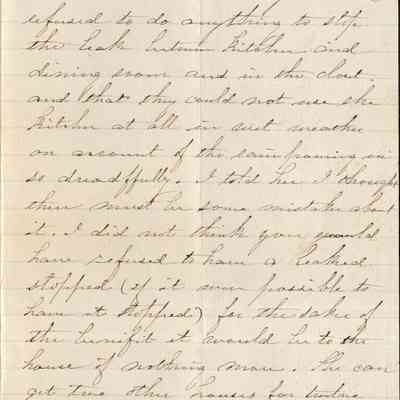 refused to do anything to stop
the leak between Kitchen and
dining room and in the closet.
and that they could not use the
Kitchen at all in wet weather
on account of the rain pouring in
so dreadfully. I told her I thought
there must be some mistake about
it. I did not think you would
have refused to have a leaked
stopped (if it were possible to
have it stopped) for the sake of
the benifit it would be to the
house if nothing more. She can
get two other houses for twelve